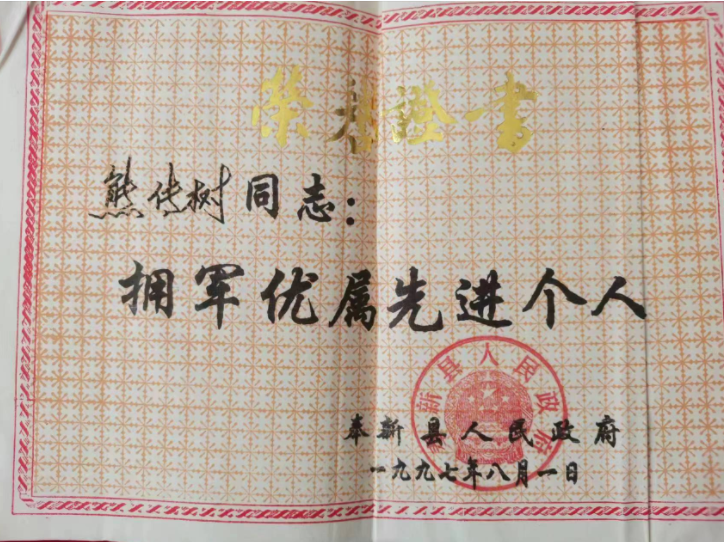 荣誉證書
熊传树同志：
拥军优属先进个人
奉新县人民政府
一九九七年八月一日
奉新县人民政府